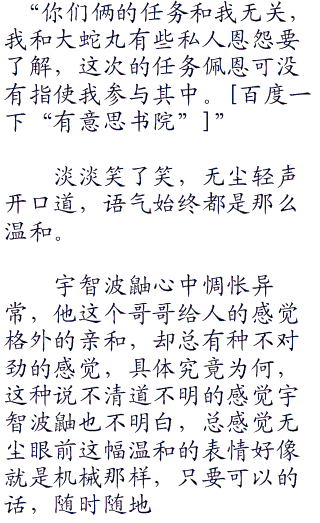 “你们俩的任务和我无关，
我和大蛇丸有些私人恩怨要
了解，这次的任务佩恩可没
有指使我参与其中。[百度一
下“有意思书院”]”
淡淡笑了笑，无尘轻声
开口道，语气始终都是那么
温和。
宇智波鼬心中惆怅异
常，他这个哥哥给人的感觉
格外的亲和，却总有种不对
劲的感觉，具体究竟为何，
这种说不清道不明的感觉宇
智波鼬也不明白，总感觉无
尘眼前这幅温和的表情好像
就是机械那样，只要可以的
话，随时随地